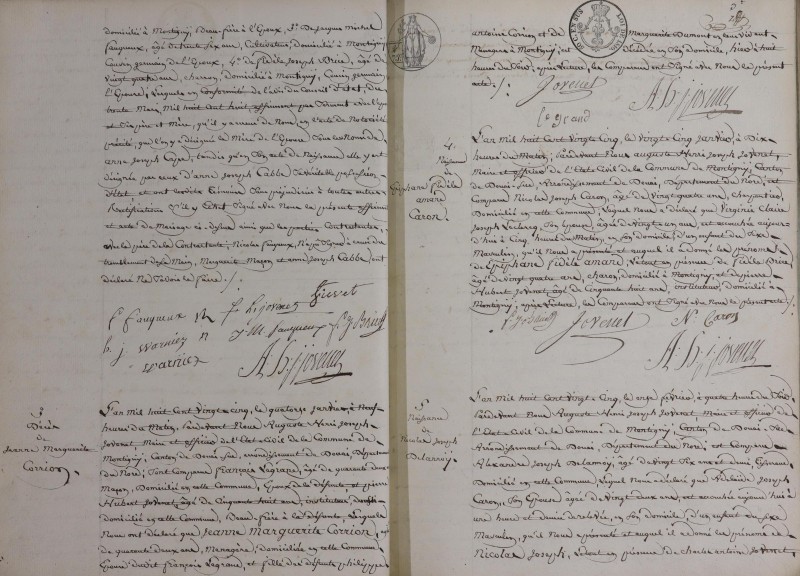 domicilié à Montigny, Beau-frère à l'Epoux, 3.° De Jacques Michel
Fauqueux, âgé de trente six ans, Cultivateur, domicilié à Montigny,
Cousin germain de l'Epoux, 4.° de fidèle Joseph Brice, âgé de
Vingt quatre ans, charron, domicilié à Montigny, Cousin germain
l'Epouse; Lesquels en Conformité de l'avis du Conseil d'état, du
trente Mars, Mil huit Cent huit,
et Mère, qu'il y a erreur de Nom en l'acte de Notoriété
précité, que l'on y a désigné la Mère de l'Epouse Sous les Noms de
anne Joseph tandis qu'en Son acte de Naissance elle y est
désignée par ceux d'anne Joseph Cabbe,
Rectification qu'il y Echet. Signé avec Nous le présent
et acte de Mariage ci-dessus ainsi que les parties Contractantes,
le père de la Contractante; Nicolas Fauqueux, N'ayant Signé à cause du
tremblement de sa Main, Marguerite et anne Joseph Cabbe, ont
déclaré Ne Savoir le faire ./.
f fauqueux
h. j. warniez
warniez
A. h. j. jovenet
5
Décès
de
Jeanne Marguerite
Corrion.
L'an mil huit Cent Vingt-Cinq, le quatorze janvier, à Neuf
heures du Matin, Pardevant Nous Auguste Henri Joseph
Jovenet, Maire et officier de l'Etat-Civil de la Commune de
Montigny, Canton de Douai-Sud, arrondissement de Douai, Département
du Nord; Sont Comparus François Legrand, âgé de quarante deux
Domicilié en cette Commune, Epoux de la Défunte, et pierre
Hubert Jovenet, âgé de Cinquante huit ans, instituteur,
domicilié en cette Commune, Beau-frère à la Défunte, Lesquels
Nous ont déclaré que Jeanne Marguerite Corrion, âgée
de quarante deux ans, Ménagère, domiciliée en cette Commune
Epouse dudit François Legrand, et fille des défunts philippe
antoine Corrion et de Marguerite Dumont en leur vivant
Ménagers à Montigny; est décédée en Son domicile, hier à huit
heures du Soir; après lecture, les Comparans ont Signé avec Nous le présent
acte ./.
Jovenet
le grand
A. h. j. jovenet
4.
Naissance
de
Epiphane fidèle
amare
Caron.
L'an mil huit Cent Vingt-Cinq, le Vingt-Cinq janvier, à Dix
heures du Matin, Pardevant Nous auguste Henri Joseph Jovenet,
Maire et officier de l'Etat Civil de la Commune de Montigny, Canton
de Douai-Sud, Arrondissement de Douai, Département du Nord; est
Comparu Nicolas Joseph Caron, âgé de Vingt quatre ans, charpentier,
Domicilié en cette Commune; Lequel Nous a déclaré que Virginie Claire
Joseph Leclercq, Son Epouse, âgée de Vingt un ans, est accouchée aujour-
d'hui à Cinq heures du Matin, en Son domicile, d'un enfant du Sexe
Masculin, qu'il Nous a présenté et auquel il a donné les prénoms
de Epiphane fidèle amare; Ledit en présence de fidèle Brice,
âgé de vingt quatre ans, charon, domicilié à Montigny, et de pierre
Hubert Jovenet, âgé de Cinquante huit ans, instituteur, domicilié à
Montigny; après lecture, les Comparans ont Signé avec Nous le présent acte ./.
Jovenet
N. Caron
A. h. j. jovenet
5
Naissance
de
Nicolas Joseph
Delannoy
L'an mil huit Cent Vingt-Cinq, le onze février, à quatre heures du Soir,
Pardevant Nous Auguste Henri Joseph Jovenet, Maire et officier de
l'Etat Civil de la Commune de Montigny, Canton de Douai-Sud,
Arrondissement de Douai, Département du Nord; est Comparu
Alexandre Joseph Delannoy, âgé de Vingt Six ans et demi,
Domicilié en cette Commune; Lequel Nous a déclaré que Adelaïde Joseph
Caron, Son Epouse, âgée de Vingt-deux ans, est accouchée hier à
une heure et demie de relevée, en Son domicile, d'un enfant du Sexe
Masculin, qu'il Nous a présenté et auquel il a donné les prénoms de
Nicolas Joseph, Ledit en présence de Charles antoine Jovenet,